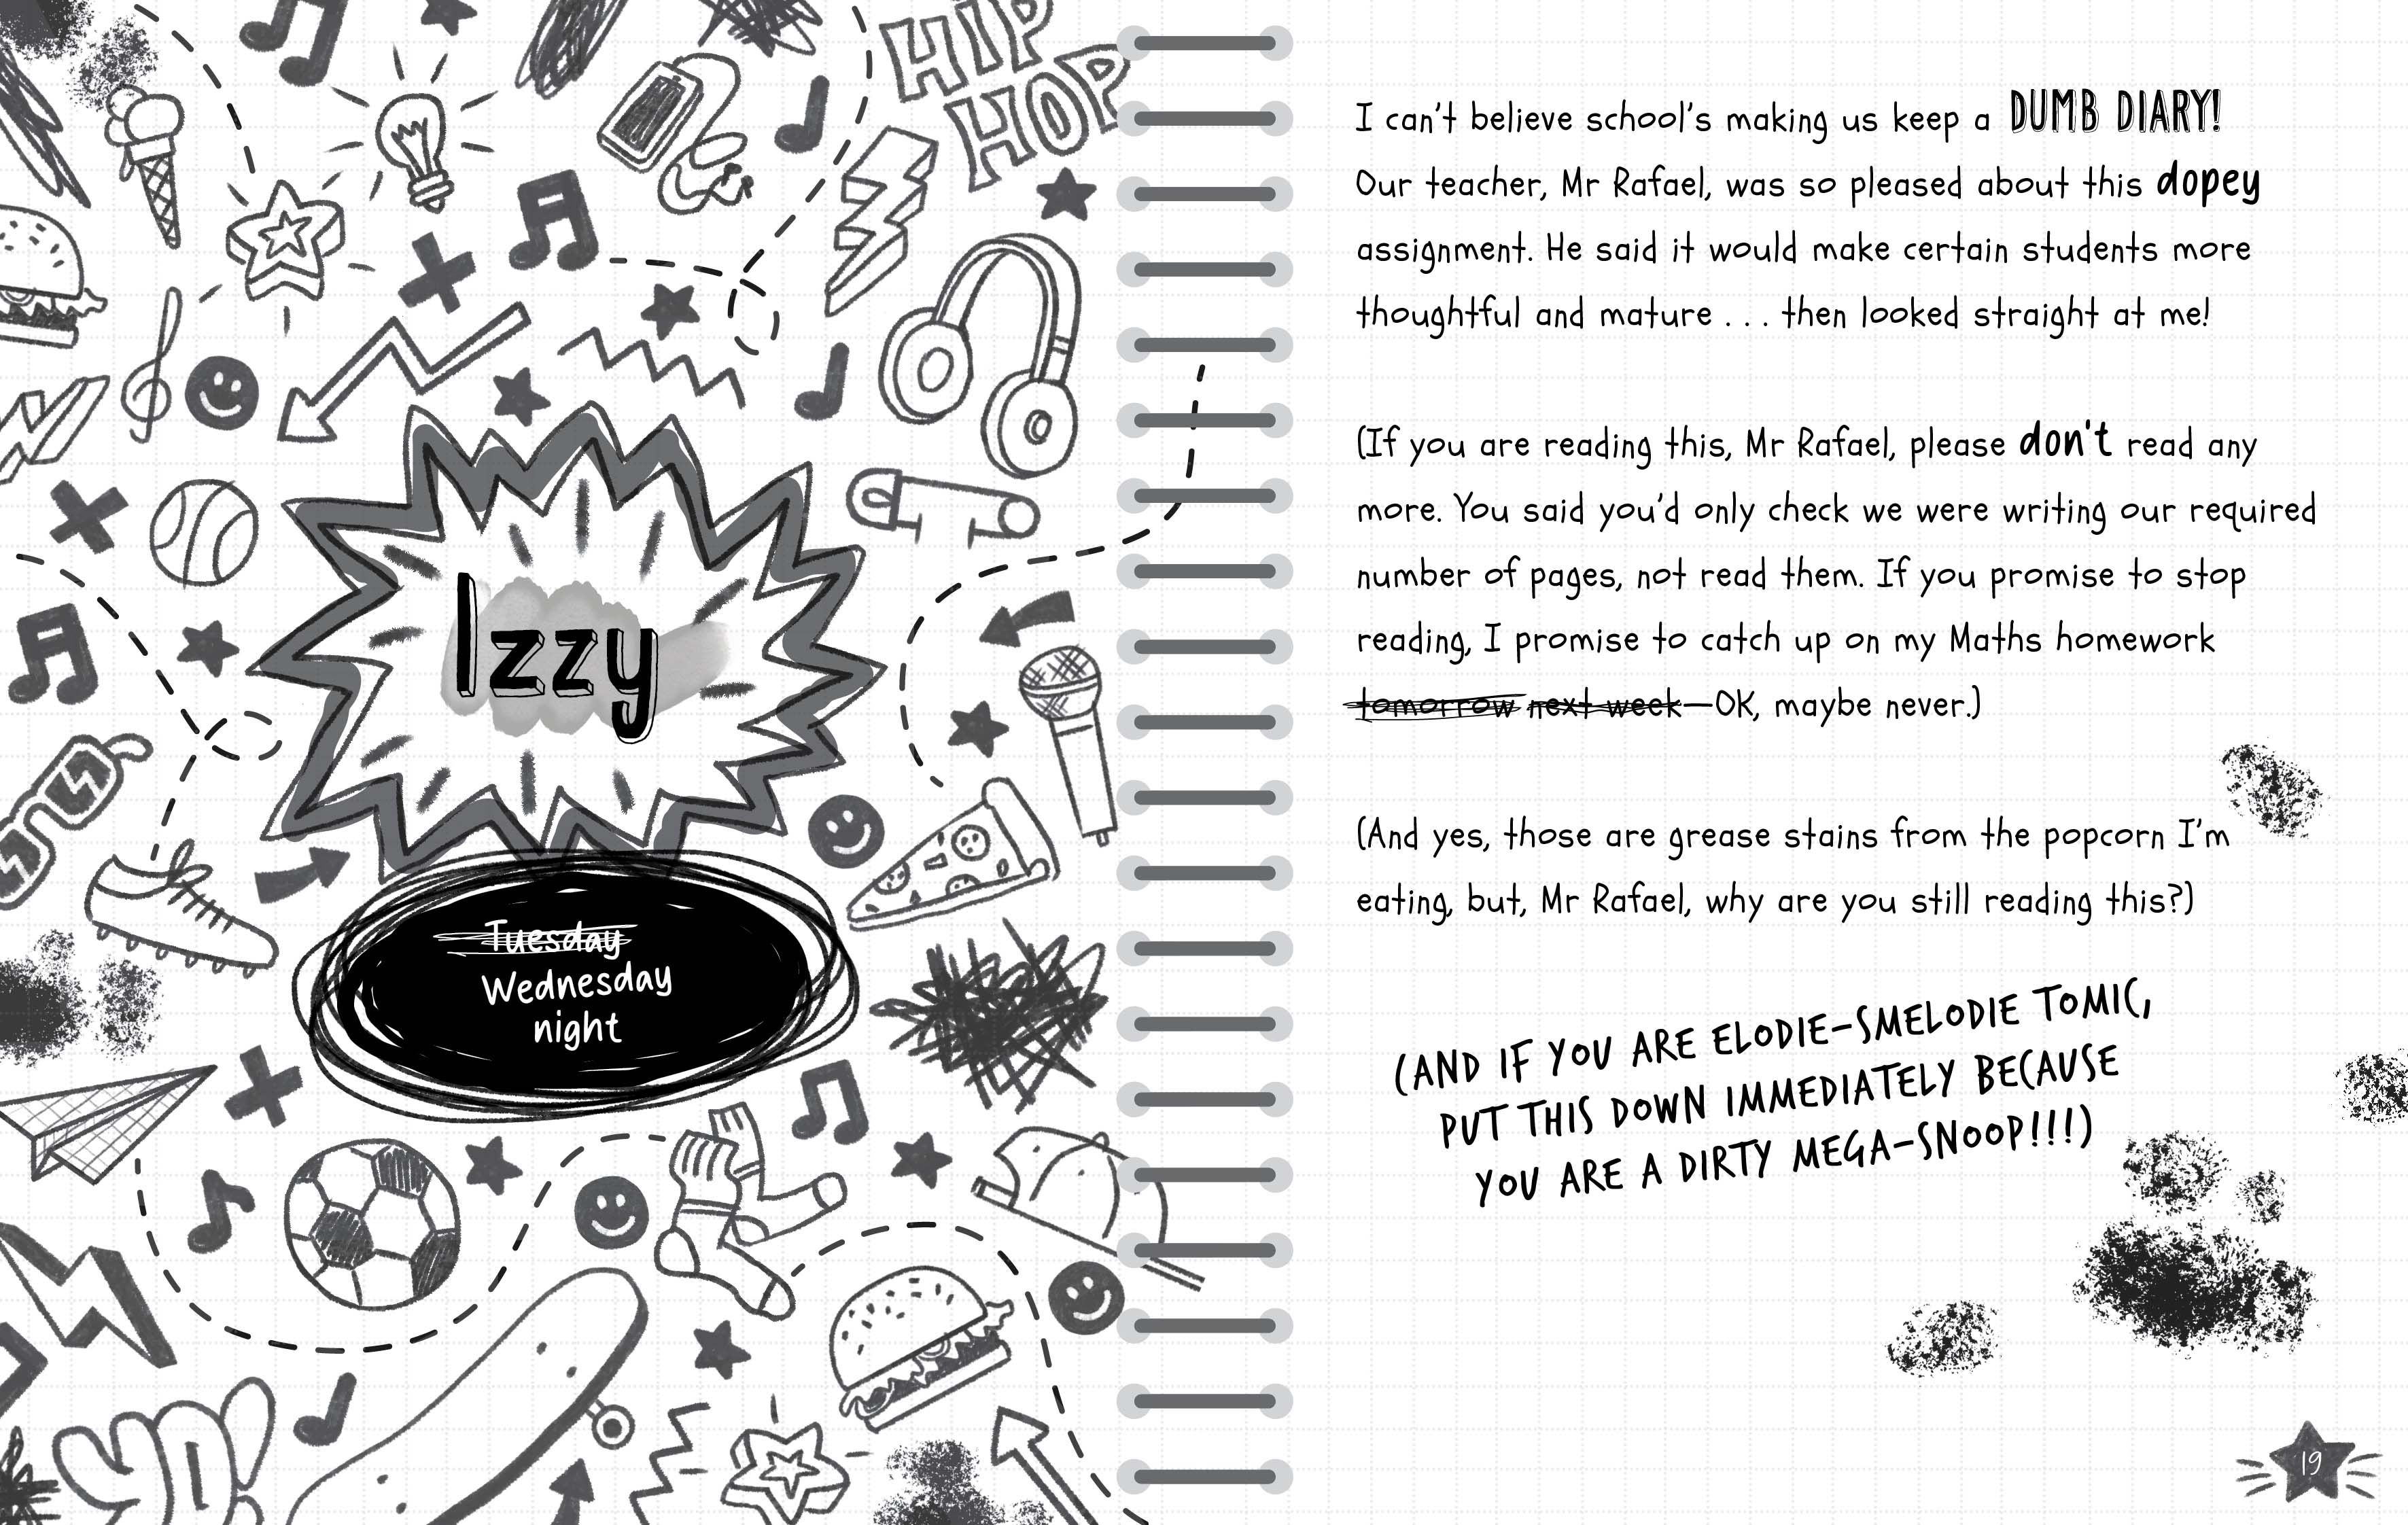 HIP
HOP
Izzy
Tuesday
Wednesday
night
YO!
I can't believe school's making us keep a DUMB DIARY!
Our teacher, Mr Rafael, was so pleased about this dopey
assignment. He said it would make certain students more
thoughtful and mature . . . then looked straight at me!
(If you are reading this, Mr Rafael, please don't read any
more. You said you'd only check we were writing our required
number of pages, not read them. If you promise to stop
reading, I promise to catch up on my Maths homework
tomorrow next week—OK, maybe never.)
(And yes, those are grease stains from the popcorn I'm
eating, but, Mr Rafael, why are you still reading this?)
(AND IF YOU ARE ELODIE-SMELODIE TOMIC,
PUT THIS DOWN IMMEDIATELY BECAUSE
YOU ARE A DIRTY MEGA-SNOOP!!!)
19